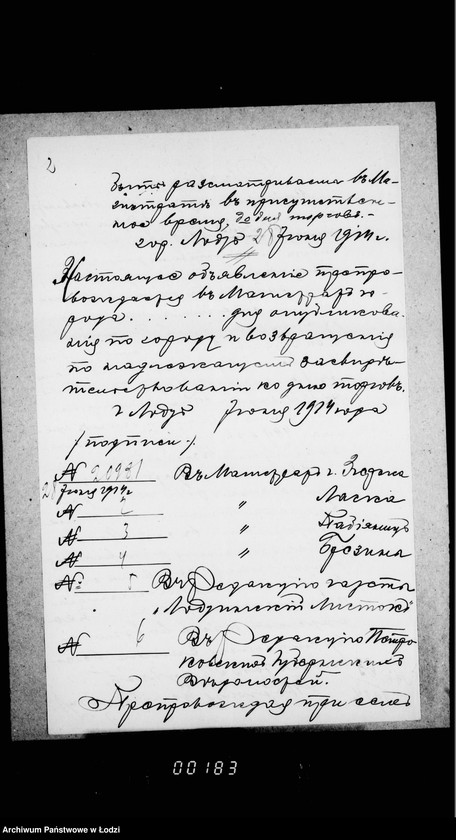 2
быть разсматриваема въ Ма-
гистратѣ въ присутствен-
ное время, до дня торговъ.-
гор. Лодзь 28 Іюня 1914 г.
Настоящее объявленіе препро-
вождается въ Магистратъ го-
рода . . . . . . . для опубликова-
нія по городу и возвращенія
по надлежащемъ засвидѣ-
тельствованіи ко дню торговъ.
г. Лодзь Іюня 1914 года
/подписи:/
№ 20931 Въ Магистратъ г. Згержа
28 Іюня 1914 г. " Ласка
№ 2
№ 3 " Пабіяницъ
№ 4 " Брезины
№ 5 Въ Редакцію газеты
"Лодзинскій Листокъ"
№ 6 Въ Редакцію Петро-
ковскихъ Губернскихъ
Вѣдомостей.
Препровождая при семъ
00183
Archiwum Państwowe w Łodzi